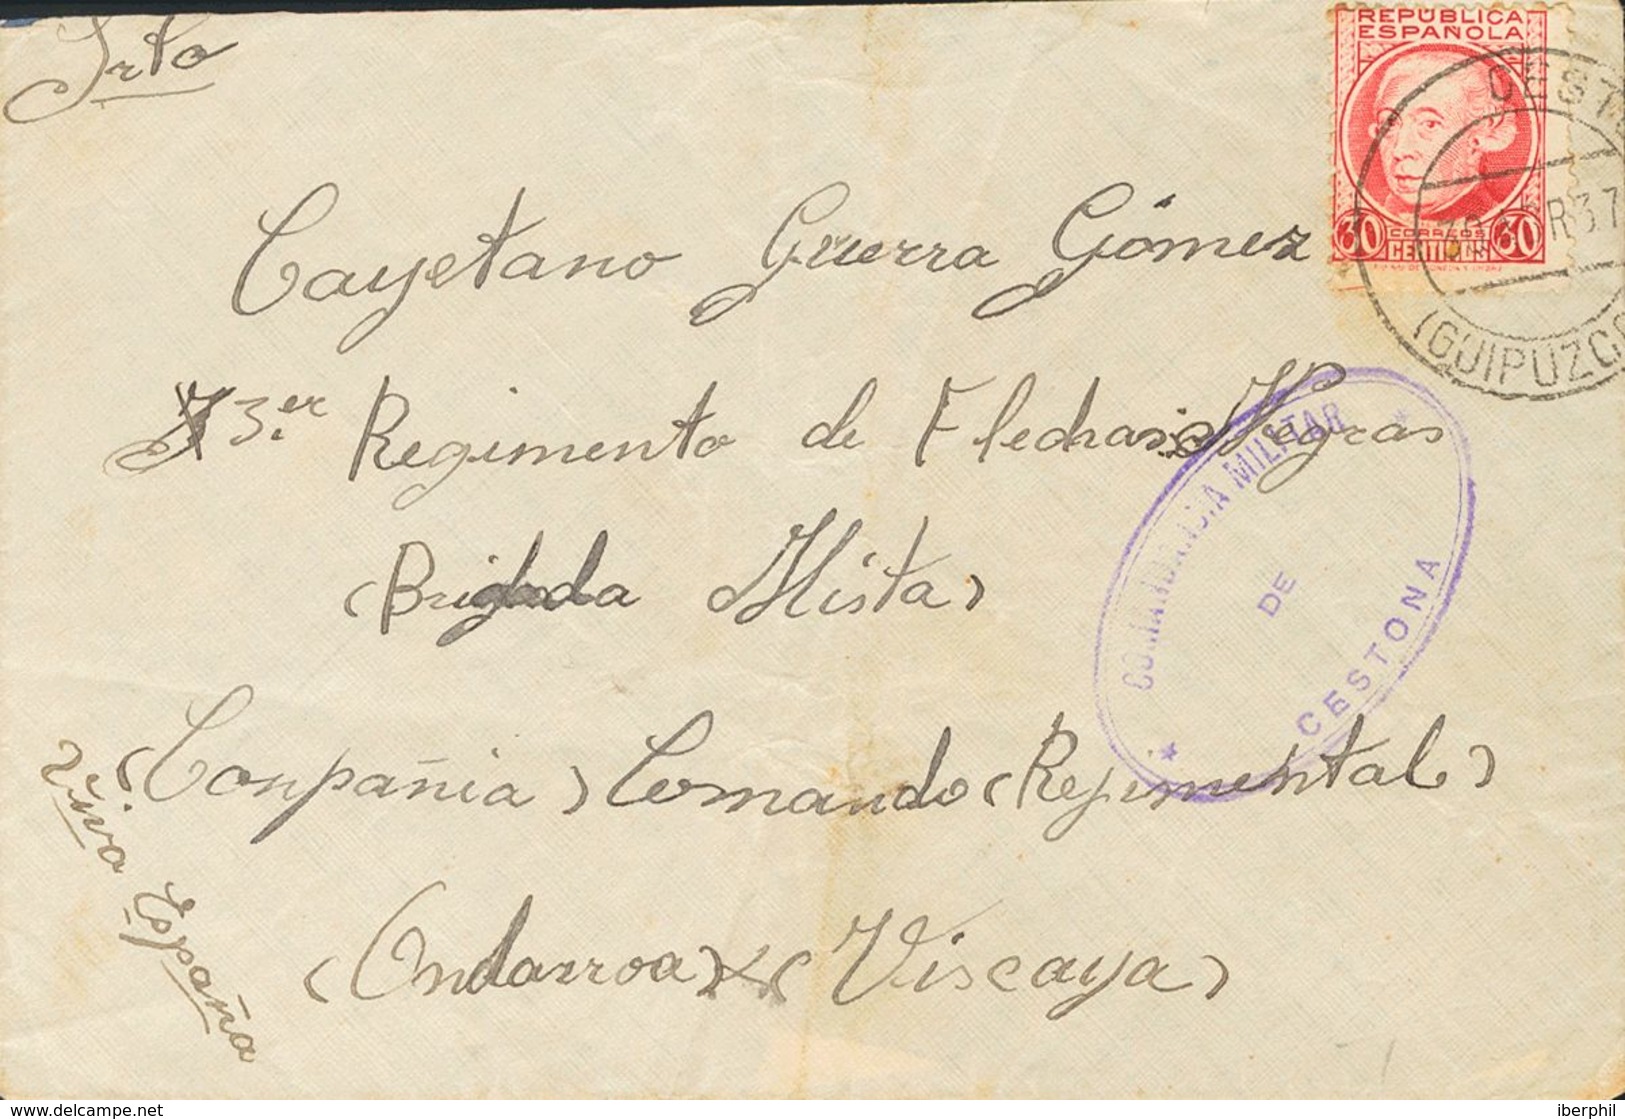 Srto
REPÚBLICA
ESPAÑOLA
30 CORREOS 30
CENTIMOS
CESTO
R 37
(GUIPUZCO
Cayetano Guerra Gómez
3.er Regimento de Flechas Negras
(Brigada Mista)
(Conpañia) Comando (Regimental)
(Ondarroa) (Viscaya)
Viva España
COMANDANCIA MILITAR
DE
CESTONA
www.delcampe.net
iberphil